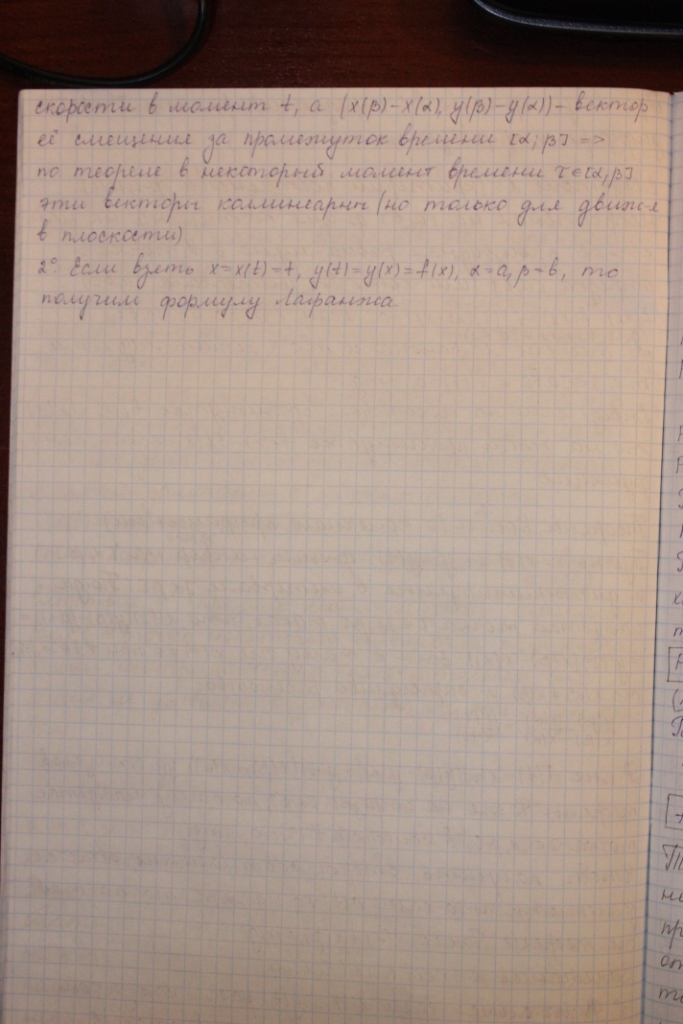 скорости в момент t, а (x(β)-x(α), y(β)-y(α)) - вектор
её смещения за промежуток времени [α; β] =>
по теореме в некоторый момент времени τ∈[α,β]
эти векторы коллинеарны (но только для движ-я
в плоскости)
2° Если взять x=x(t)=t, y(t)=y(x)=f(x), α=a, β=b, то
получим формулу Лагранжа